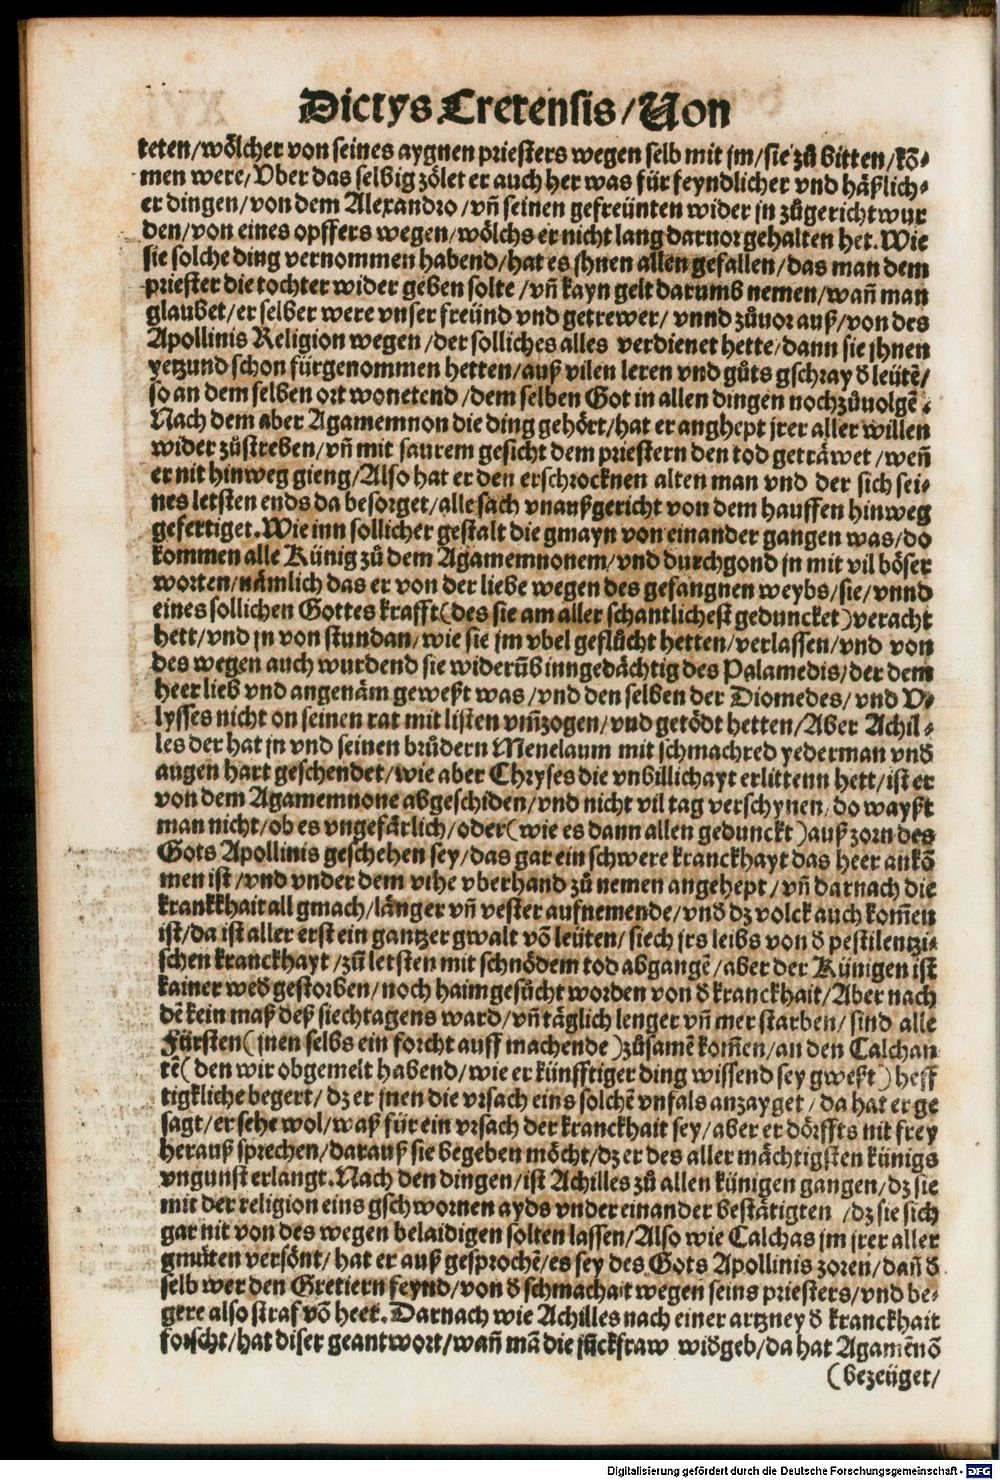 Dictys Cretensis/Von
teten/wölcher von seines aygnen priesters wegen selb mit jm/sie zů bitten/kō-
men were/Vber das selbig zölet er auch her was für feyndlicher vnd häßlich-
er dingen/von dem Alexandro/vñ seinen gefreünten wider jn zůgericht wur
den/von eines opffers wegen/wölchs er nicht lang daruor gehalten het. Wie
sie solche ding vernommen habend/hat es jhnen allen gefallen/das man dem
priester die tochter wider geben solte/vñ kayn gelt darumb nemen/wañ man
glaubet/er selber were vnser freünd vnd getrewer/ vnnd zůuor auß/von des
Apollinis Religion wegen/der solliches alles verdienet hette/dann sie jhnen
yetzund schon fürgenommen hetten/auß vilen leren vnd gůts gschray d̕ leütē/
so an dem selben ort wonetend/dem selben Got in allen dingen nochzůuolgē.
Nach dem aber Agamemnon die ding gehört/hat er anghept jrer aller willen
wider zůstreben/vñ mit saurem gesicht dem priestern den tod geträwet/weñ
er nit hinweg gieng/Also hat er den erschrocknen alten man vnd der sich sei-
nes letsten ends da besorget/alle sach vnaußgericht von dem hauffen hinweg
gefertiget. Wie inn sollicher gestalt die gmayn von einander gangen was/do
kommen alle Künig zů dem Agamemnonem/vnd durchgond jn mit vil böser
worten/nämlich das er von der liebe wegen des gefangnen weybs/sie/vnnd
eines sollichen Gottes krafft(des sie am aller schantlichest geduncket)veracht
hett/vnd jn von stundan/wie sie jm vbel geflůcht hetten/verlassen/vnd von
des wegen auch wurdend sie widerūb inngedächtig des Palamedis/der dem
heer lieb vnd angenäm geweßt was/vnd den selben der Diomedes/vnd V-
lysses nicht on seinen rat mit listen vm̄zogen/vnd getödt hetten/Aber Achil-
les der hat jn vnd seinen brůdern Menelaum mit schmachred yederman vnd̕
augen hart geschendet/wie aber Chryses die vnbillichayt erlittenn hett/ist er
von dem Agamemnone abgeschiden/vnd nicht vil tag verschynen/do wayßt
man nicht/ob es vngefärlich/oder(wie es dann allen gedunckt)auß zorn des
Gots Apollinis geschehen sey/das gar ein schwere kranckhayt das heer ankō
men ist/vnd vnder dem vihe vberhand zů nemen angehept/vñ darnach die
krankkhait all gmach/länger vñ vester aufnemende/vnd̕ dz volck auch kom̄en
ist/da ist aller erst ein gantzer gwalt vō leüten/siech jrs leibs von d̕ pestilentzi-
schen kranckhayt/zů letsten mit schnödem tod abgangē/aber der Künigen ist
kainer wed̕ gestorben/noch haimgesůcht worden von d̕ kranckhait/Aber nach
dē kein maß deß siechtagens ward/vñ täglich lenger vñ mer starben/sind alle
Fürsten(jnen selbs ein forcht auff machende)zůsamē kom̄en/an den Calchan
tē(den wir obgemelt habend/wie er künfftiger ding wissend sey gweßt)heff
tigkliche begert/dz er jnen die vrsach eins solchē vnfals anzayget/da hat er ge
sagt/er sehe wol/waß für ein vrsach der kranckhait sey/aber er dörffts nit frey
herauß sprechen/darauß sie begeben möcht/dz er des aller mächtigsten künigs
vngunst erlangt. Nach den dingen/ist Achilles zů allen künigen gangen/dz sie
mit der religion eins gschwornen ayds vnder einander bestätigten/dz sie sich
gar nit von des wegen belaidigen solten lassen/Also wie Calchas jm jrer aller
gmüten versönt/hat er auß gesprochē/es sey des Gots Apollinis zoren/dañ d̕
selb wer den Gretiern feynd/von d̕ schmachait wegen seins priesters/vnd be-
gere also straf vō heer. Darnach wie Achilles nach einer artzney d̕ kranckhait
forscht/hat diser geantwort/wañ mā die jückfraw wid̕geb/da hat Agamēnō
(bezeüget/
Digitalisierung gefördert durch die Deutsche Forschungsgemeinschaft - DFG